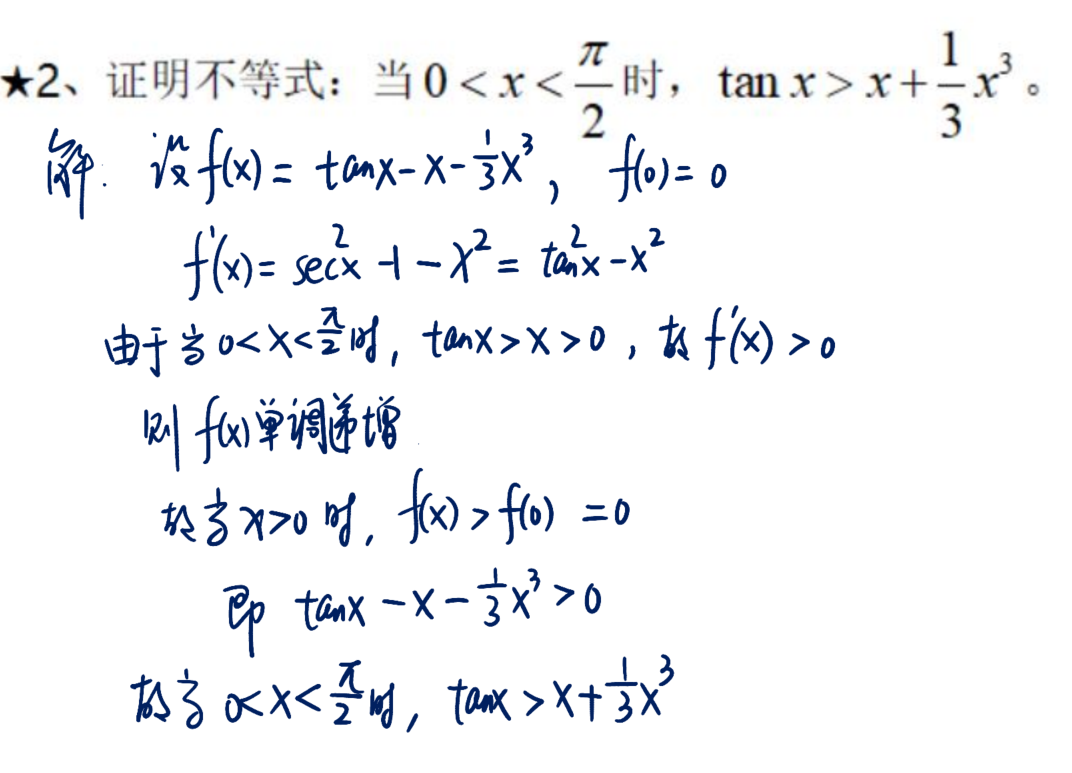 ★2、证明不等式：当 0 < x < π/2 时，tan x > x + 1/3 x³。
解: 设 f(x) = tanx - x - 1/3 x³, f(0) = 0
f'(x) = sec²x - 1 - x² = tan²x - x²
由于当 0 < x < π/2 时, tanx > x > 0, 故 f'(x) > 0
则 f(x) 单调递增
故当 x > 0 时, f(x) > f(0) = 0
即 tanx - x - 1/3 x³ > 0
故当 0 < x < π/2 时, tanx > x + 1/3 x³